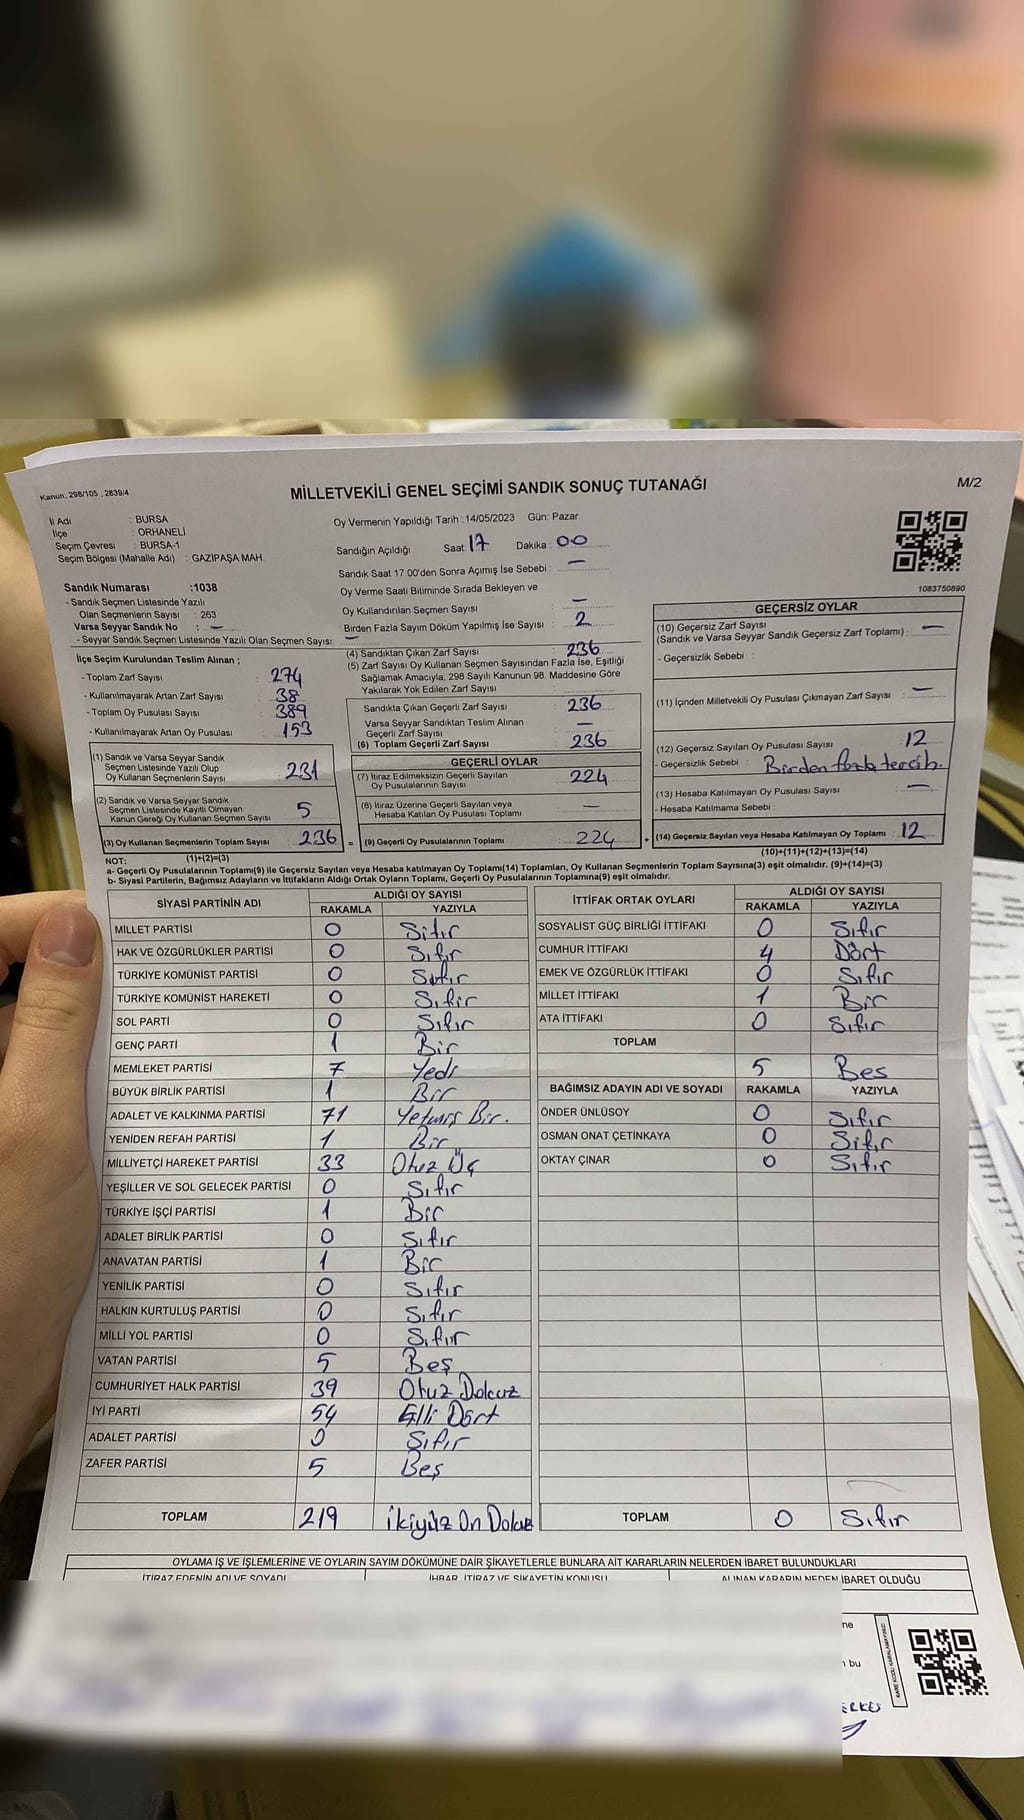 Kanun: 298/105 , 2839/4
MİLLETVEKİLİ GENEL SEÇİMİ SANDIK SONUÇ TUTANAĞI
M/2
İl Adı : BURSA
İlçe : ORHANELİ
Seçim Çevresi : BURSA-1
Seçim Bölgesi (Mahalle Adı) : GAZİPAŞA MAH.
Sandık Numarası :1038
- Sandık Seçmen Listesinde Yazılı
Olan Seçmenlerin Sayısı : 263
Varsa Seyyar Sandık No : —
- Seyyar Sandık Seçmen Listesinde Yazılı Olan Seçmen Sayısı: —
Oy Vermenin Yapıldığı Tarih :14/05/2023 Gün: Pazar
Sandığın Açıldığı Saat: 17 Dakika : 00
Sandık Saat 17 00'den Sonra Açımış İse Sebebi : —
Oy Verme Saati Bitiminde Sırada Bekleyen ve
Oy Kullandırılan Seçmen Sayısı —
Birden Fazla Sayım Döküm Yapılmış İse Sayısı : 2
1083750890
İlçe Seçim Kurulundan Teslim Alınan ;
- Toplam Zarf Sayısı : 274
- Kullanılmayarak Artan Zarf Sayısı : 38
- Toplam Oy Pusulası Sayısı : 389
- Kullanılmayarak Artan Oy Pusulası : 153
(1) Sandık ve Varsa Seyyar Sandık
Seçmen Listesinde Yazılı Olup
Oy Kullanan Seçmenlerin Sayısı : 231
(2) Sandık ve Varsa Seyyar Sandık
Seçmen Listesinde Kayıtlı Olmayan
Kanun Gereği Oy Kullanan Seçmen Sayısı : 5
(3) Oy Kullanan Seçmenlerin Toplam Sayısı : 236
(4) Sandıktan Çıkan Zarf Sayısı : 236
(5) Zarf Sayısı Oy Kullanan Seçmen Sayısından Fazla İse, Eşitliği
Sağlamak Amacıyla, 298 Sayılı Kanunun 98. Maddesine Göre
Yakılarak Yok Edilen Zarf Sayısı :
Sandıkta Çıkan Geçerli Zarf Sayısı : 236
Varsa Seyyar Sandıktan Teslim Alınan
Geçerli Zarf Sayısı : —
(6) Toplam Geçerli Zarf Sayısı : 236
GEÇERLİ OYLAR
(7) İtiraz Edilmeksizin Geçerli Sayılan
Oy Pusulalarının Sayısı : 224
(8) İtiraz Üzerine Geçerli Sayılan veya
Hesaba Katılan Oy Pusulası Toplamı : —
= (9) Geçerli Oy Pusulalarının Toplamı : 224
GEÇERSİZ OYLAR
(10) Geçersiz Zarf Sayısı
(Sandık ve Varsa Seyyar Sandık Geçersiz Zarf Toplamı) : —
- Geçersizlik Sebebi :
(11) İçinden Milletvekili Oy Pusulası Çıkmayan Zarf Sayısı : —
(12) Geçersiz Sayılan Oy Pusulası Sayısı : 12
- Geçersizlik Sebebi : Birden fazla tercih.
(13) Hesaba Katılmayan Oy Pusulası Sayısı : —
- Hesaba Katılmama Sebebi :
+ (14) Geçersiz Sayılan veya Hesaba Katılmayan Oy Toplamı : 12
NOT: (1)+(2)=(3)
(10)+(11)+(12)+(13)=(14)
a- Geçerli Oy Pusulalarının Toplamı(9) ile Geçersiz Sayılan veya Hesaba katılmayan Oy Toplamı(14) Toplamları, Oy Kullanan Seçmenlerin Toplam Sayısına(3) eşit olmalıdır. (9)+(14)=(3)
b- Siyasi Partilerin, Bağımsız Adayların ve İttifakların Aldığı Ortak Oyların Toplamı, Geçerli Oy Pusulalarının Toplamına(9) eşit olmalıdır.
SİYASİ PARTİNİN ADI ALDIĞI OY SAYISI
RAKAMLA YAZIYLA
MİLLET PARTİSİ 0 Sıfır
HAK VE ÖZGÜRLÜKLER PARTİSİ 0 Sıfır
TÜRKİYE KOMÜNİST PARTİSİ 0 Sıfır
TÜRKİYE KOMÜNİST HAREKETİ 0 Sıfır
SOL PARTİ 0 Sıfır
GENÇ PARTİ 1 Bir
MEMLEKET PARTİSİ 7 Yedi
BÜYÜK BİRLİK PARTİSİ 1 Bir
ADALET VE KALKINMA PARTİSİ 71 Yetmiş Bir.
YENİDEN REFAH PARTİSİ 1 Bir
MİLLİYETÇİ HAREKET PARTİSİ 33 Otuz Üç
YEŞİLLER VE SOL GELECEK PARTİSİ 0 Sıfır
TÜRKİYE İŞÇİ PARTİSİ 1 Bir
ADALET BİRLİK PARTİSİ 0 Sıfır
ANAVATAN PARTİSİ 1 Bir
YENİLİK PARTİSİ 0 Sıfır
HALKIN KURTULUŞ PARTİSİ 0 Sıfır
MİLLİ YOL PARTİSİ 0 Sıfır
VATAN PARTİSİ 5 Beş
CUMHURİYET HALK PARTİSİ 39 Otuz Dokuz
İYİ PARTİ 54 Elli Dört
ADALET PARTİSİ 0 Sıfır
ZAFER PARTİSİ 5 Beş
TOPLAM 219 ikiyüz On Dokuz
İTTİFAK ORTAK OYLARI ALDIĞI OY SAYISI
RAKAMLA YAZIYLA
SOSYALİST GÜÇ BİRLİĞİ İTTİFAKI 0 Sıfır
CUMHUR İTTİFAKI 4 Dört
EMEK VE ÖZGÜRLÜK İTTİFAKI 0 Sıfır
MİLLET İTTİFAKI 1 Bir
ATA İTTİFAKI 0 Sıfır
TOPLAM
5 Bes
BAĞIMSIZ ADAYIN ADI VE SOYADI RAKAMLA YAZIYLA
ÖNDER ÜNLÜSOY 0 Sıfır
OSMAN ONAT ÇETİNKAYA 0 Sıfır
OKTAY ÇINAR 0 Sıfır
TOPLAM 0 Sıfır
OYLAMA İŞ VE İŞLEMLERİNE VE OYLARIN SAYIM DÖKÜMÜNE DAİR ŞİKAYETLERLE BUNLARA AİT KARARLARIN NELERDEN İBARET BULUNDUKLARI
İTİRAZ EDENİN ADI VE SOYADI İHBAR, İTİRAZ VE ŞİKAYETİN KONUSU ALINAN KARARIN NEDEN İBARET OLDUĞU
ne
bu